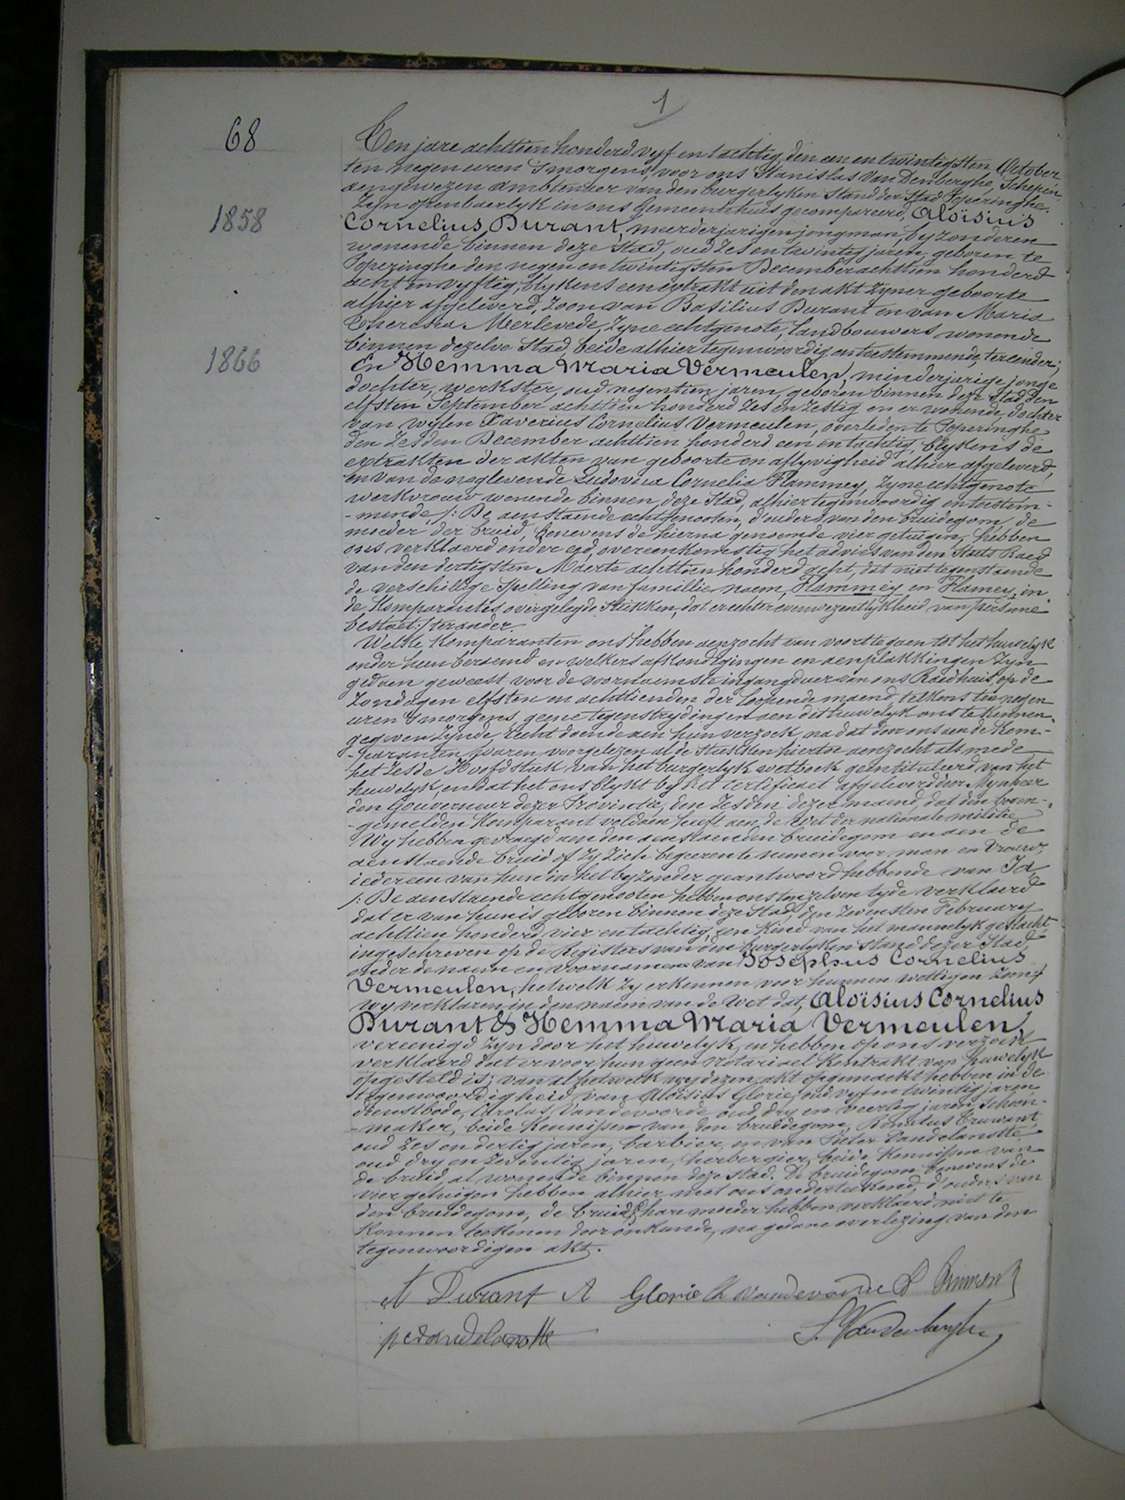 1
68
Ten jare achttien honderd vyf en tachtig, den een en twintigsten October
ten negen uren 's morgens, voor ons Stanislas Van Denberghe, Schepen
aengewezen ambtenaer van den burgerlyken Stand der Stad Poperinghe
zyn openbaerlyk in ons Gemeentehuis gecompareerd, Aloïsius
1858
Cornelius Durant, meerderjarigen jongman, byzonderen
wonende binnen deze Stad, oud zes en twintig jaren, geboren te
Poperinghe den negen en twintigsten December achttien honderd
acht en vyftig, blykens een extrakt uit den akt zyner geboorte
alhier afgeleverd, zoon van Basilius Durant en van Maria
Theresia Merlevede, zyne echtgenote, landbouwers, wonende
binnen dezelve Stad, beide alhier tegenwoordig en toestemmende, ter eender;
1866
En Hemma Maria Vermeulen, minderjarige jonge
dochter, werkster, oud negentien jaren, geboren binnen deze Stad den
elfsten September achttien honderd zes en zestig en er wonende, dochter
van wylen Xaverius Cornelius Vermeulen, overleden te Poperinghe
den zesden December achttien honderd een en tachtig, blykens de
extrakten der akten van geboorte en aflyvigheid alhier afgeleverd,
en van de naglevende Ludovica Cornelia Flammey, zyne echtgenote
werkvrouw wonende binnen deze Stad, alhier tegenwoordig en toestem-
-mende /: De aenstaende echtgenooten, d'ouders van den bruidegom, de
moeder der bruid, benevens de hierna genoemde vier getuigen, hebben
ons verklaerd onder eed, overeenkomstig het advies van den Staets Raed
van den dertigsten Maerte achttien honderd acht, dat niettegenstaende
de verschillige Spelling van familie naem, Flammey en Flamey, in
de Komparanten overgelegde Stukken, dat er echter eenwezentlykheid van persone
bestaet :/ ter ander.
Welke Komparanten ons hebben aenzocht van voort te gaen tot het huwelyk
onder hun beraemd en welkers afkondigingen en aenplakkingen zyn
gedaen geweest voor de voornaemste ingangdeur van ons Raedhuis op de
Zondagen elfsten en achttienden der loopende maend telkens ten negen
uren 's morgens, geene tegenstrydingen aen dit huwelyk ons te kennen
gegeven zynde, recht doende aen hun verzoek, na dat door ons aen de Kom-
-paranten waren voorgelezen al de Stukken hiertoe aenzocht als mede
het zesde Hoofdstuk van het burgerlyk wetboek geintituleerd van het
huwelyk, en dat het ons blykt by het certificaet afgeleverd door Mynheer
den Gouverneur dezer Provintie, den zesden dezer maend, dat den voren-
-gemelden Komparant voldaen heeft aen de Wet der nationale militie
Wy hebben gevraegd aen den aenstaenden bruidegom en aen de
aenstaende bruid of zy zich begeeren te nemen voor man en vrouw,
ieder een van hun in het byzonder geantwoord hebbende van Ja,
/: De aenstaende echtgenooten hebben ons terzelven tyde verklaerd
dat er van hun is geboren binnen deze Stad, den zevensten February
achttien honderd vier en tachtig, een Kind van het mannelyk geslacht
ingeschreven op de Registers van den burgerlyken stand dezer Stad,
onder de naem en voornamen van Josephus Cornelius
Vermeulen, hetwelk zy erkennen voor hunnen wettigen zoon :/
Wy verklaren in den naem van de Wet dat, Aloïsius Cornelius
Durant & Hemma Maria Vermeulen,
vereenigd zyn door het huwelyk, en hebben op ons verzoek
verklaerd dat er voor hun geen Notariael Kontrakt van huwelyk
opgesteld is; van al hetwelk wy dezen akt opgemaekt hebben in de
tegenwoordigheid van Aloïsius Glorie, oud vyf en twintig jaren
dienstbode, Carolus Vandevoorde, oud dry en veertig jaren, schoen-
-maker, beide Kennissen van den bruidegom,
oud zes en dertig jaren, barbier, en van Pieter Vandelanotte
oud dry en zeventig jaren, herbergier, beide Kennissen van
de bruid, al wonende binnen deze Stad. De bruidegom benevens de
vier getuigen hebben alhier met ons onderteekend, d'ouders van
den bruidegom, de bruid & hare moeder hebben verklaerd niet te
Konnen teekenen door onkunde, na gedane overlezing van den
tegenwoordigen akt.
A Durant A Glorie Ch Vandevoorde
p vandelanotte S. Vandenberghe